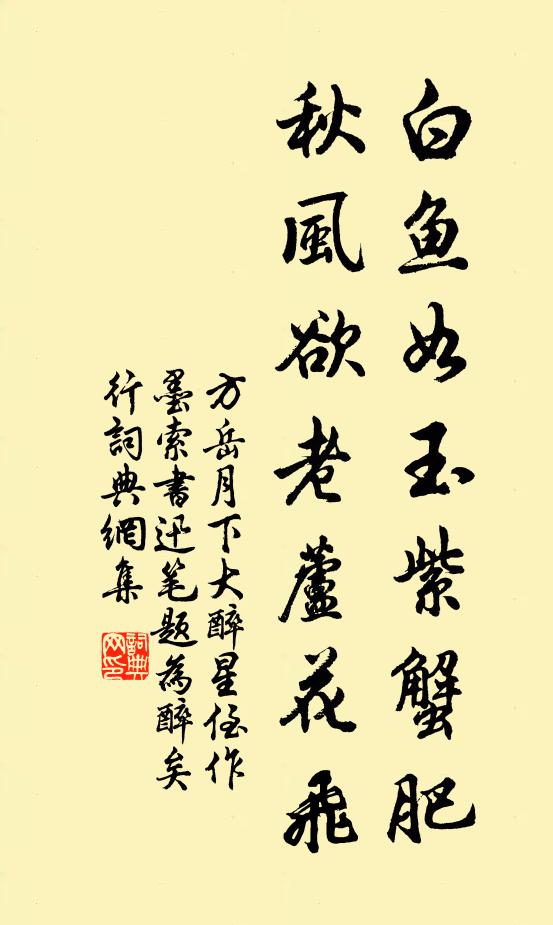 白魚如玉紫蟹肥
秋風欲老蘆花飛
方岳月下大醉星侄作
墨索書迅笔題為醉矣
行詞典網集
詞典
网印